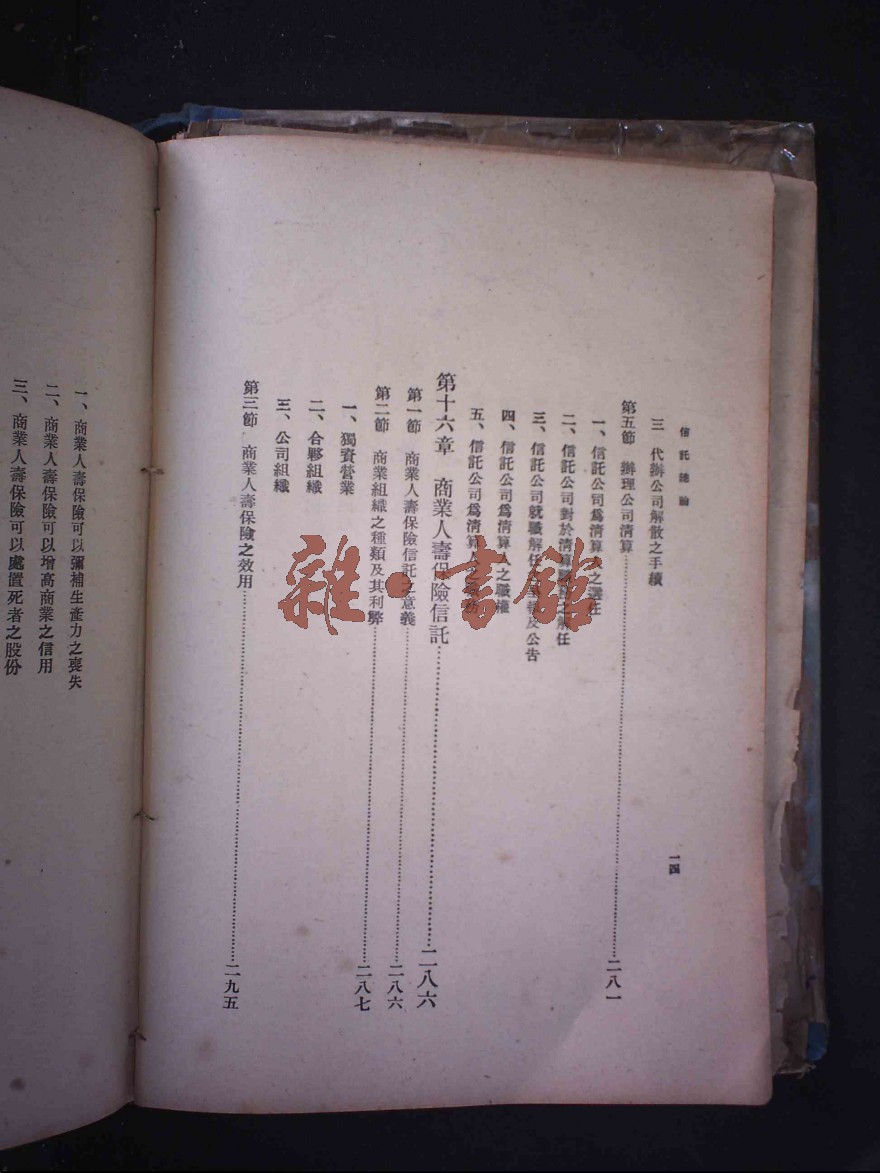 信託總論
一四
三 代辦公司解散之手續
第五節 辦理公司清算……二八一
一、信託公司爲清算人之選任
二、信託公司對於清算 之解任
三、信託公司就職解任之 及公告
四、信託公司爲清算人之職權
五、信託公司爲清算人之
第十六章 商業人壽保險信託……二八六
第一節 商業人壽保險信託之意義……二八六
第二節 商業組織之種類及其利弊……二八七
一、獨資營業
二、合夥組織
三、公司組織
第三節 商業人壽保險之效用……二九五
一、商業人壽保險可以彌補生產力之喪失
二、商業人壽保險可以增高商業之信用
三、商業人壽保險可以處置死者之股份
雜·書館